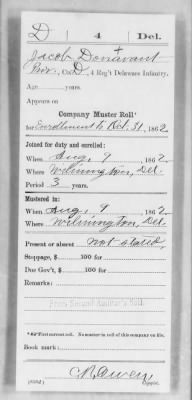 D 4 Del.
Jacob Donavant
Priv., Co. D, 4 Reg't Delaware Infantry.
Age years.
Appears on
Company Muster Roll
for Enrollment to Oct. 31, 1862
Joined for duty and enrolled:
When Aug. 9, 1862.
Where Wilmington, Del.
Period 3 years.
Mustered in:
When Aug. 9, 1862
Where Wilmington, Del.
Present or absent Not stated
Stoppage, $ 100 for
Due Gov't, $ 100 for
Remarks:
From Second Auditor's Roll.
First current Roll. No muster-in roll of this company on file.
Book mark:
(858d) Copyist.